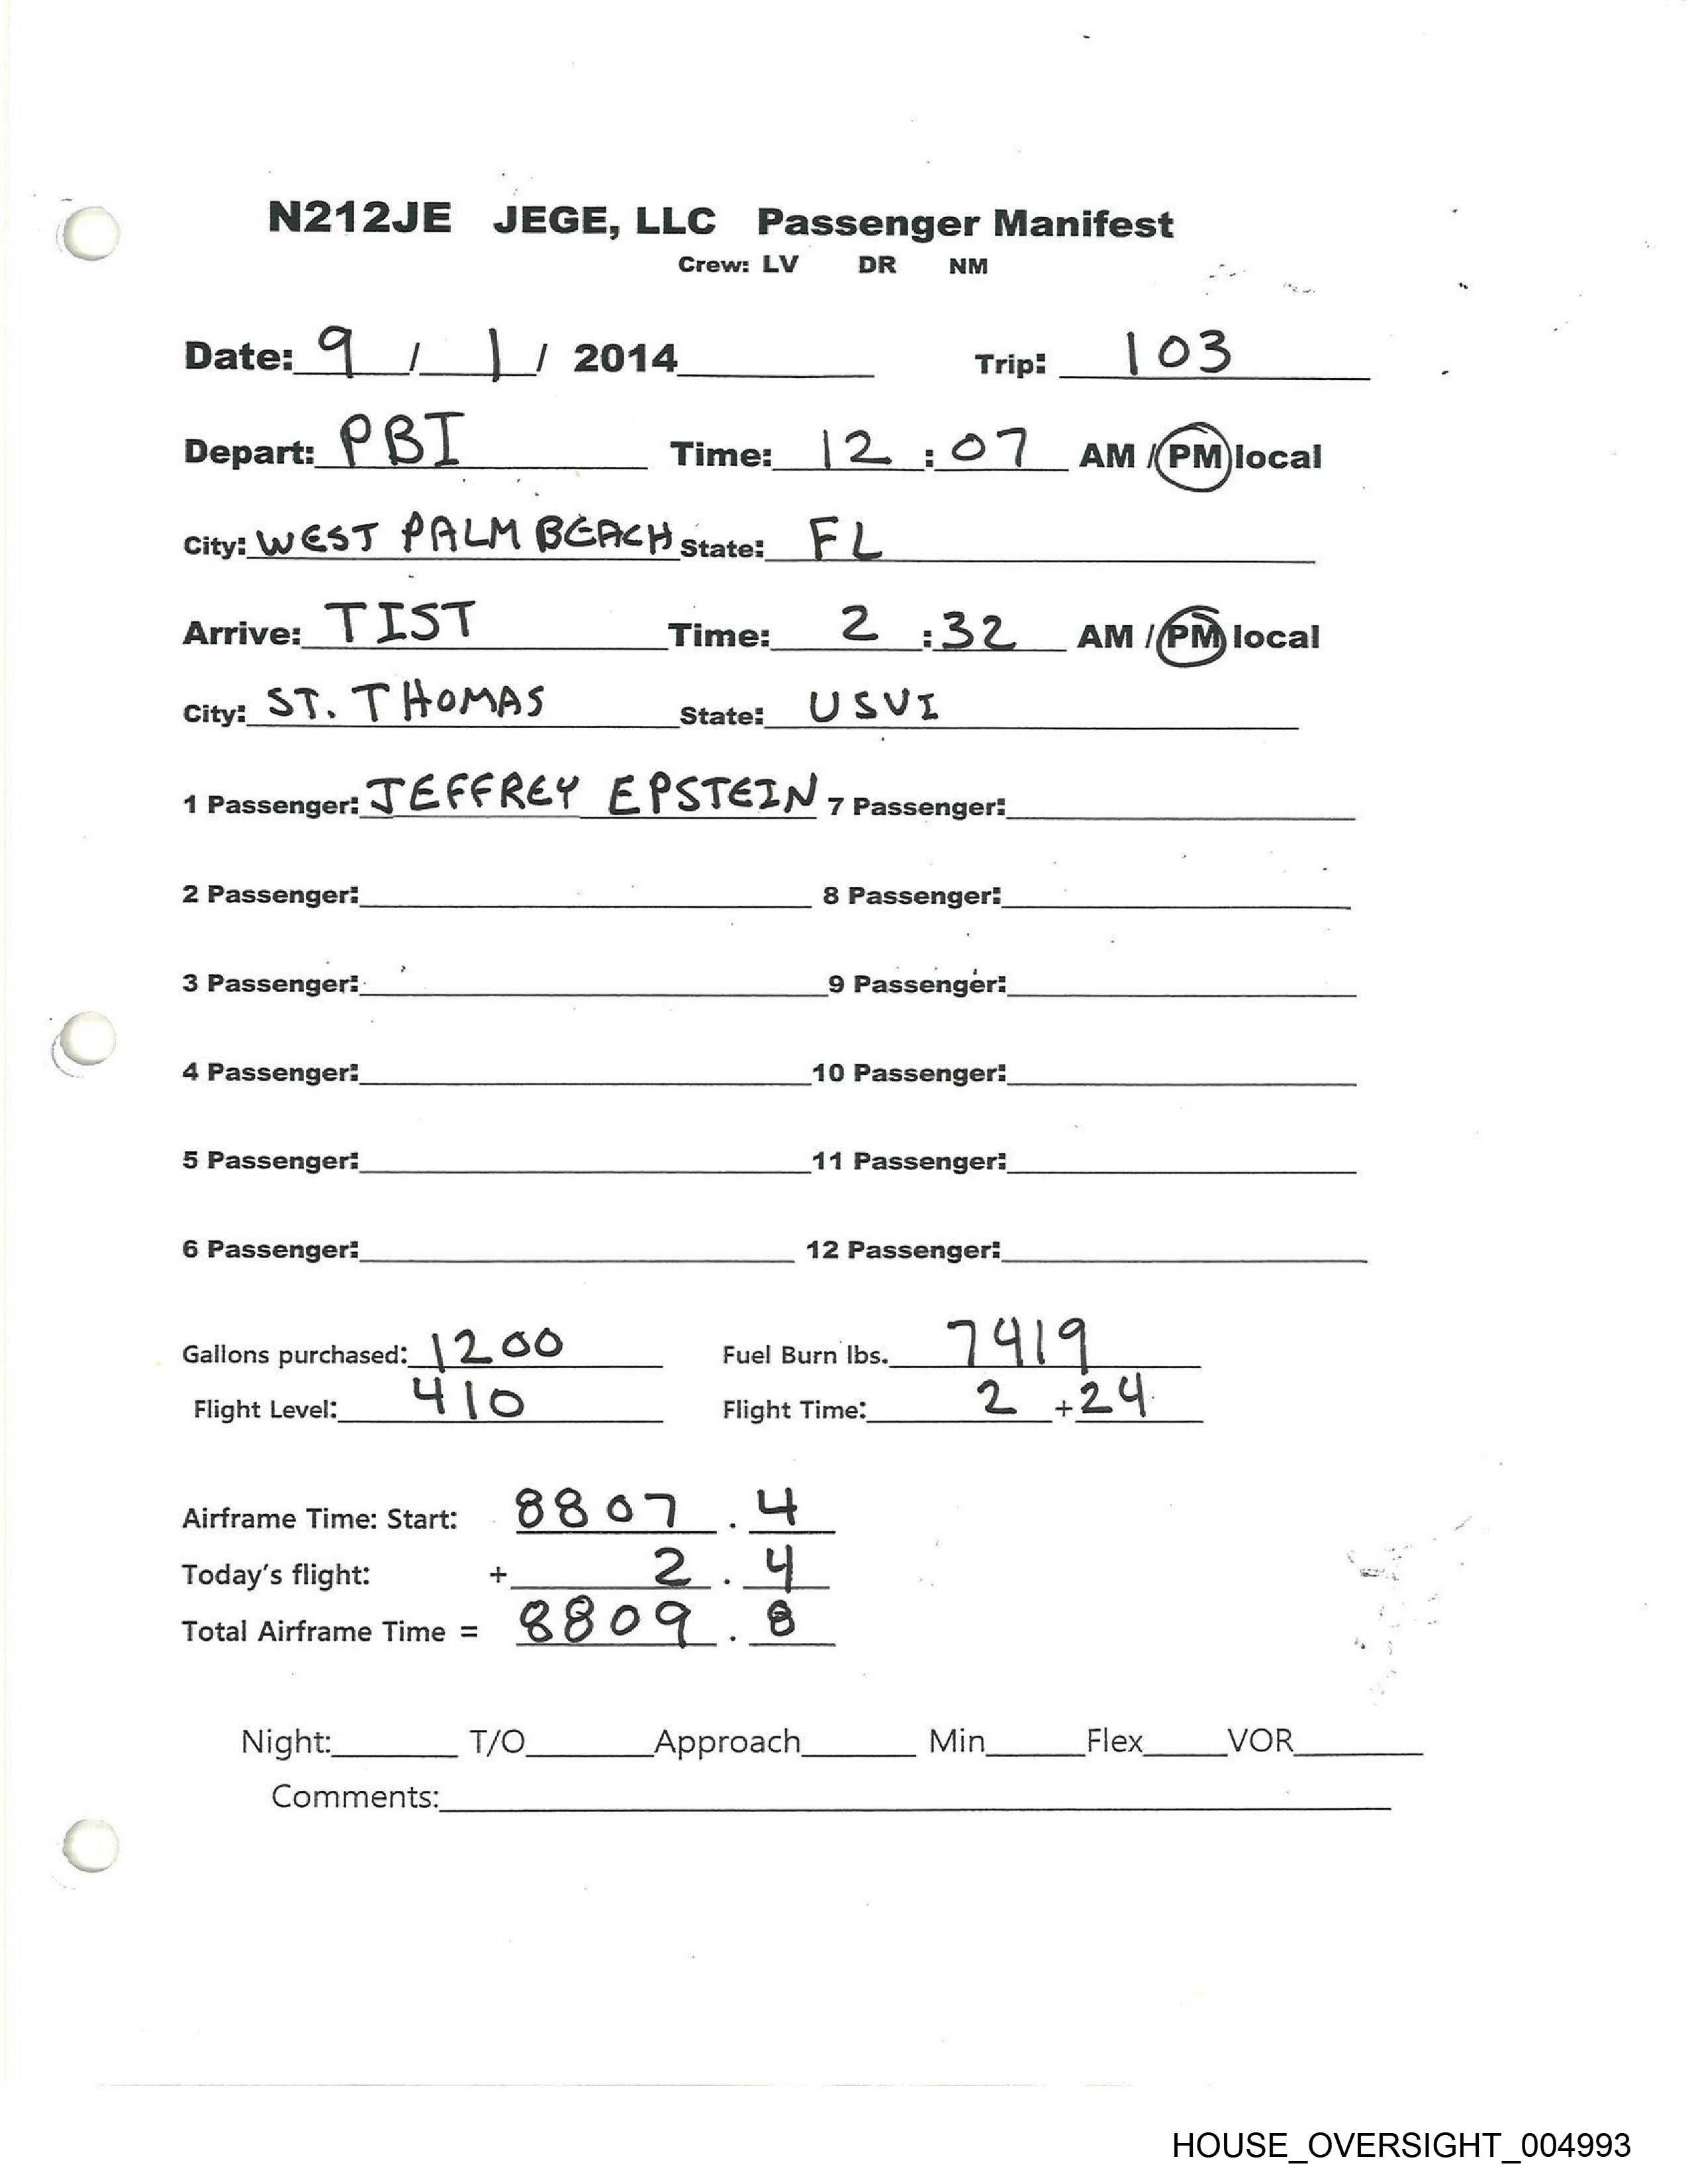 N212JE JEGE, LLC Passenger Manifest
Crew: LV DR NM
Date: 9 / 1 / 2014 Trip: 103
Depart: PBI Time: 12 : 07 AM / PM local
City: WEST PALM BEACH State: FL
Arrive: TIST Time: 2 : 32 AM / PM local
City: ST. THOMAS State: USVI
1 Passenger: JEFFREY EPSTEIN 7 Passenger:
2 Passenger: 8 Passenger:
3 Passenger: 9 Passenger:
4 Passenger: 10 Passenger:
5 Passenger: 11 Passenger:
6 Passenger: 12 Passenger:
Gallons purchased: 1200 Fuel Burn lbs. 7419
Flight Level: 410 Flight Time: 2 + 24
Airframe Time: Start: 8807 . 4
Today's flight: + 2 . 4
Total Airframe Time = 8809 . 8
Night: T/O Approach Min Flex VOR
Comments:
HOUSE_OVERSIGHT_004993